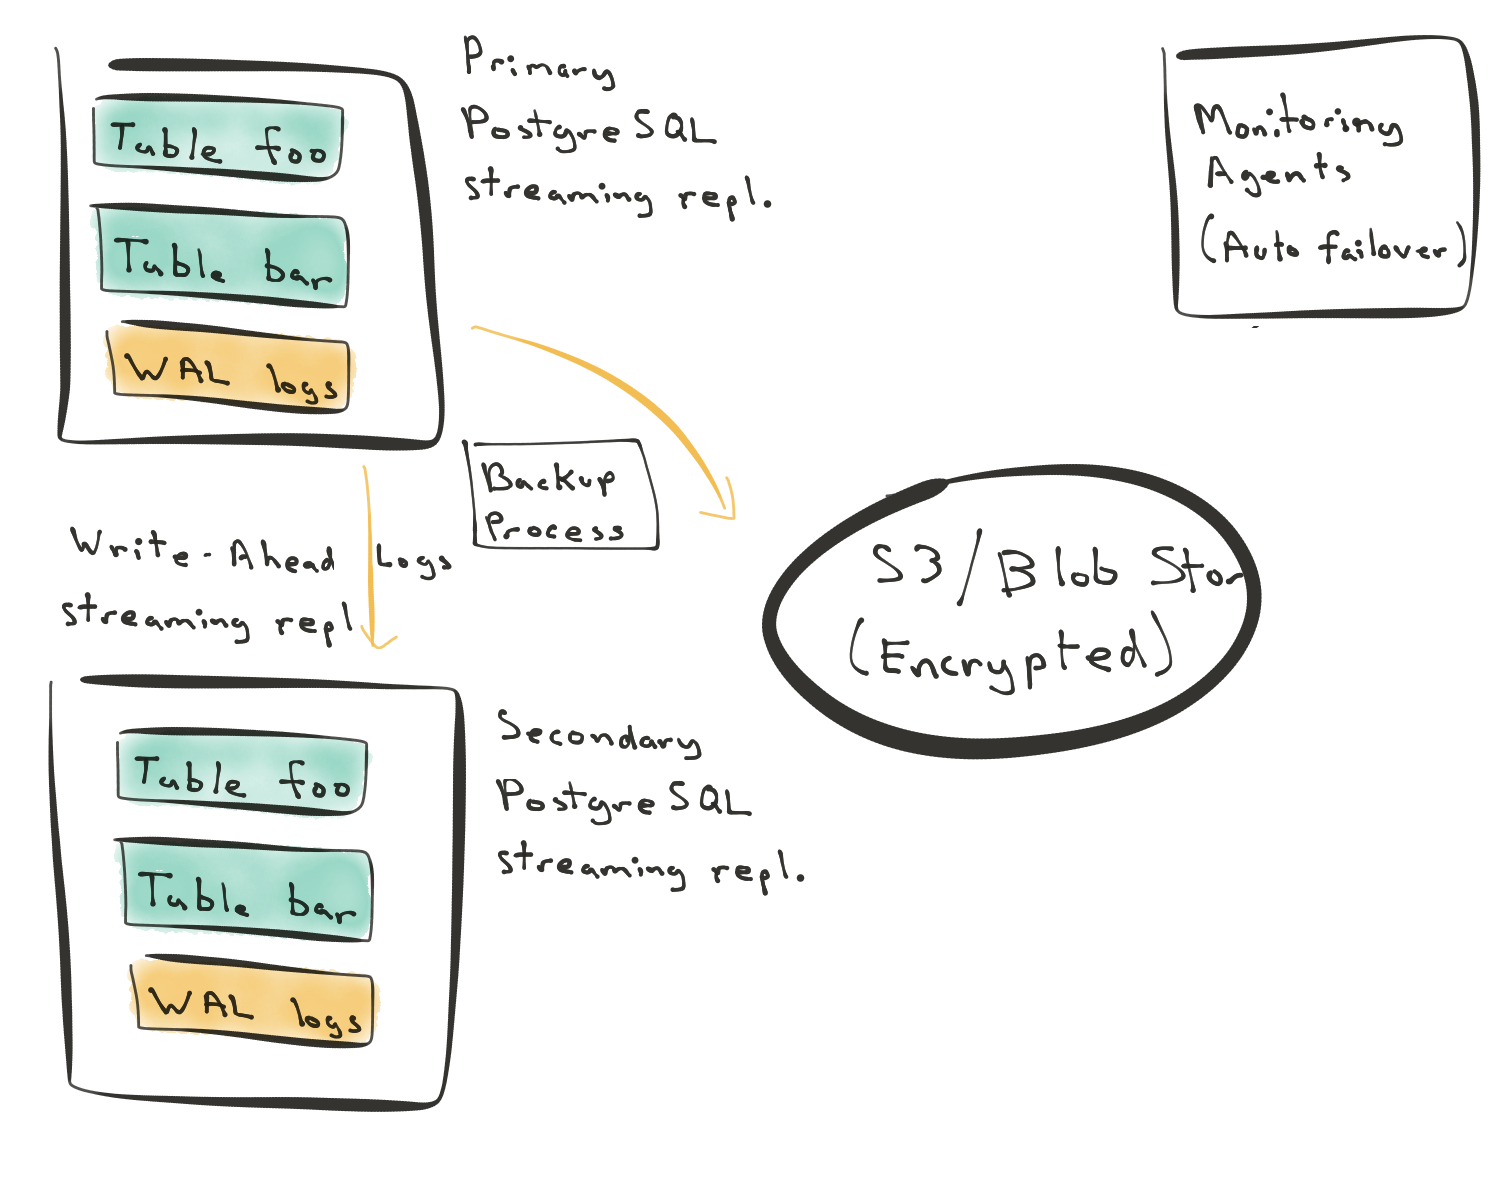 Table foo
Table bar
WAL logs
Primary
PostgreSQL
streaming repl.
Monitoring
Agents
(Auto failover)
Backup
Process
Write-Ahead Logs
streaming repl
S3/Blob Stor
(Encrypted)
Table foo
Table bar
WAL logs
Secondary
PostgreSQL
streaming repl.